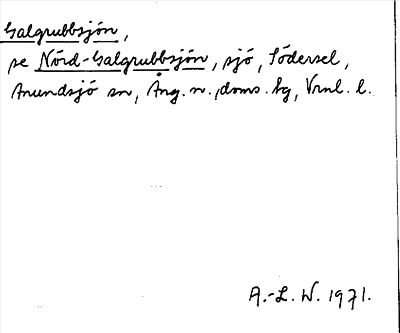 Galgrubbsjön,
se Nörd-Galgrubbsjön, sjö, Södersel,
Anundsjö sn, Ång. n. doms. hg, Vrnl. l.
A.-L. W. 1971.